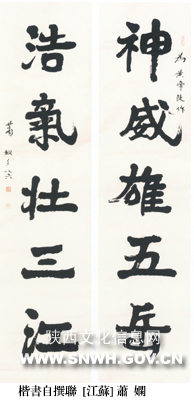 神威雄五岳
為黄帝陵作
浩氣壮三江
陕西文化信息网
WWW.SNWH.GOV.CN
楷書自撰聯 [江蘇] 蕭 嫻